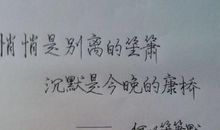 悄悄是别离的笙箫
沉默是今晚的康桥
——